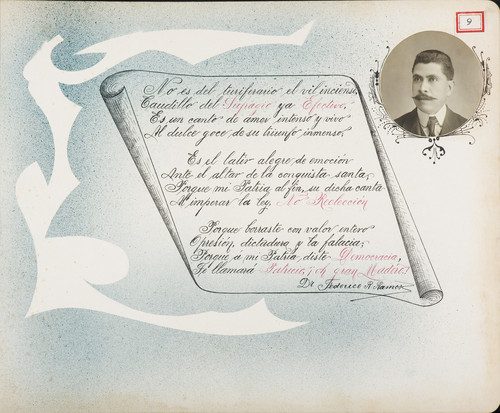 9
No es del turiferario el vil incienso,
Caudillo del Sufragio ya Efectivo,
Es un canto de amor intenso y vivo
Al dulce goce de su triunfo inmenso.
Es el latir alegre de emoción
Ante el altar de la conquista santa,
Porque mi Patria al fin, su dicha canta
Al imperar la ley, No Reelección
Porque borraste con valor entero
Opresión, dictadura y la falacia;
Porque a mi Patria, diste Democracia,
Te llamará ¡oh gran Madero!
Dr. Federico R. Ramos